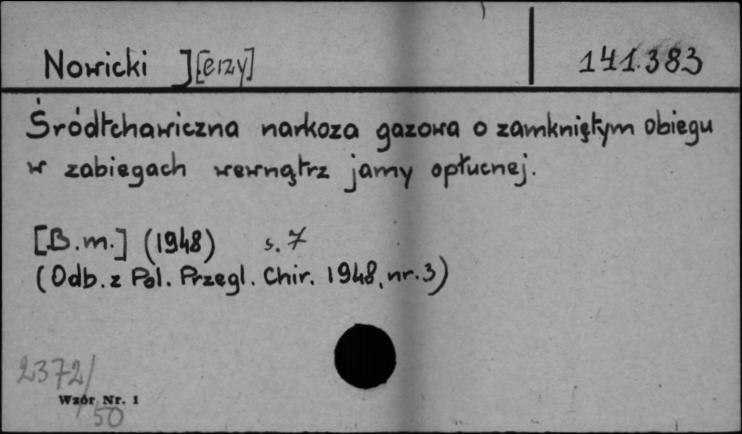 Nowicki J[erzy] 141.383
Śródtchawiczna narkoza gazowa o zamkniętym obiegu
w zabiegach wewnątrz jamy opłucnej.
[B.m.] (1948) s. 7
(Odb. z Pol. Przegl. Chir. 1948, nr. 3)
2372/
Wzór Nr. 1
50